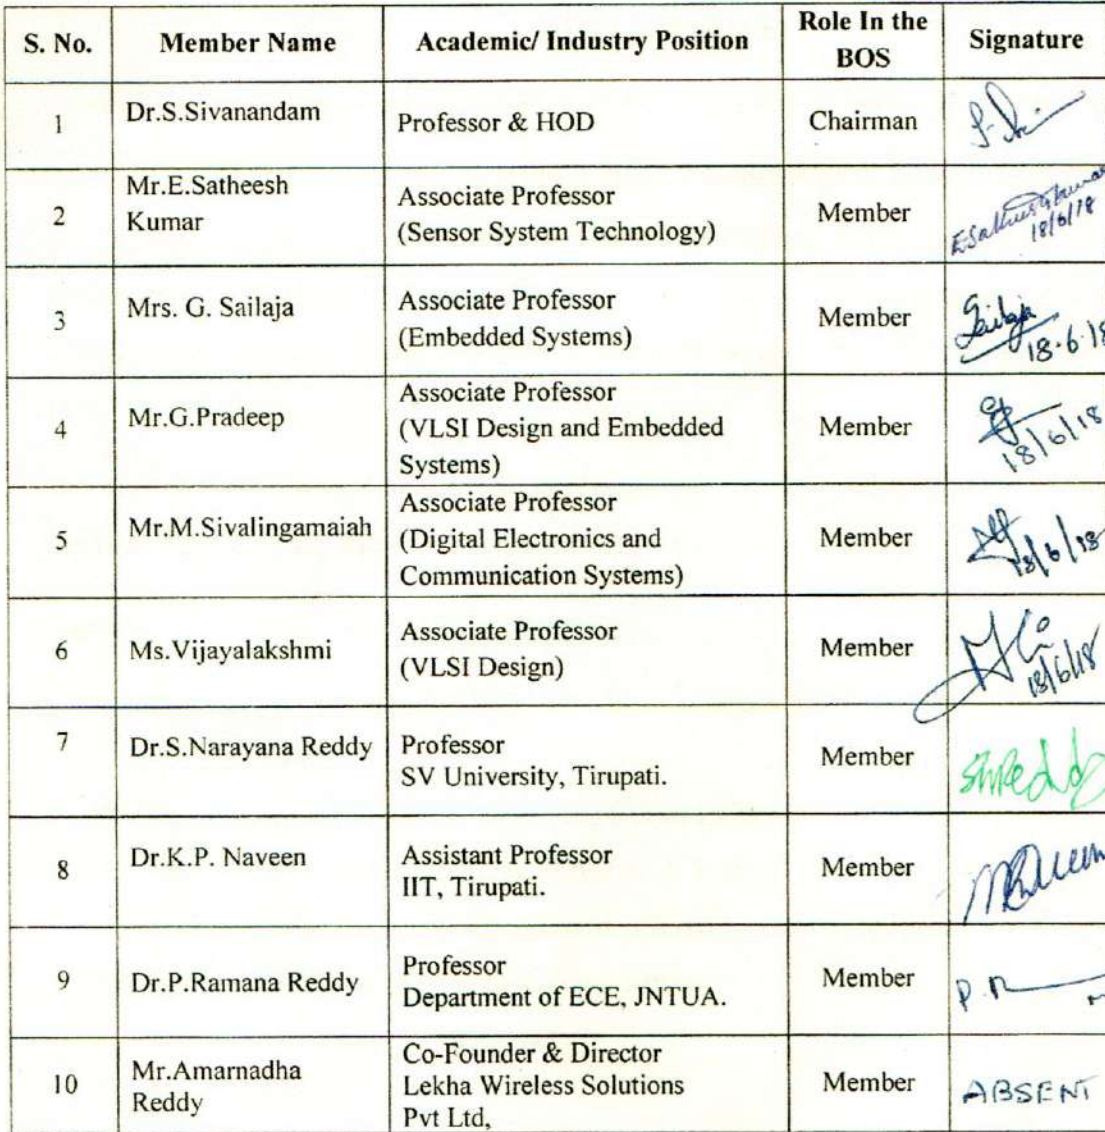 S. No. Member Name Academic/ Industry Position Role In the BOS Signature
1 Dr.S.Sivanandam Professor & HOD Chairman
2 Mr.E.Satheesh Kumar Associate Professor (Sensor System Technology) Member ESatheeshkumar 18/6/18
3 Mrs. G. Sailaja Associate Professor (Embedded Systems) Member Sailaja 18.6.18
4 Mr.G.Pradeep Associate Professor (VLSI Design and Embedded Systems) Member 18/6/18
5 Mr.M.Sivalingamaiah Associate Professor (Digital Electronics and Communication Systems) Member 18/6/18
6 Ms.Vijayalakshmi Associate Professor (VLSI Design) Member 18/6/18
7 Dr.S.Narayana Reddy Professor SV University, Tirupati. Member
8 Dr.K.P. Naveen Assistant Professor IIT, Tirupati. Member
9 Dr.P.Ramana Reddy Professor Department of ECE, JNTUA. Member
10 Mr.Amarnadha Reddy Co-Founder & Director Lekha Wireless Solutions Pvt Ltd, Member ABSENT